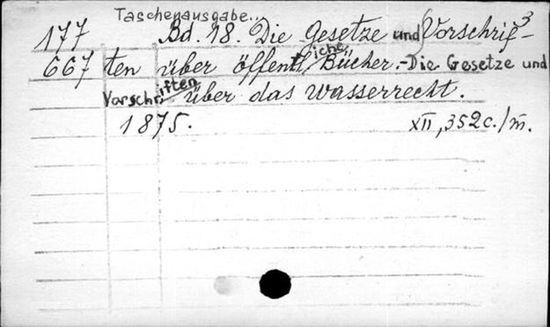 Taschenausgabe..
177 Bd. 18. Die Gesetze und Vorschrif- 3
667 ten über öffentliche Bücher.-Die Gesetze und
Vorschriften über das Wasserrecht.
1875. XII, 352 c./m.